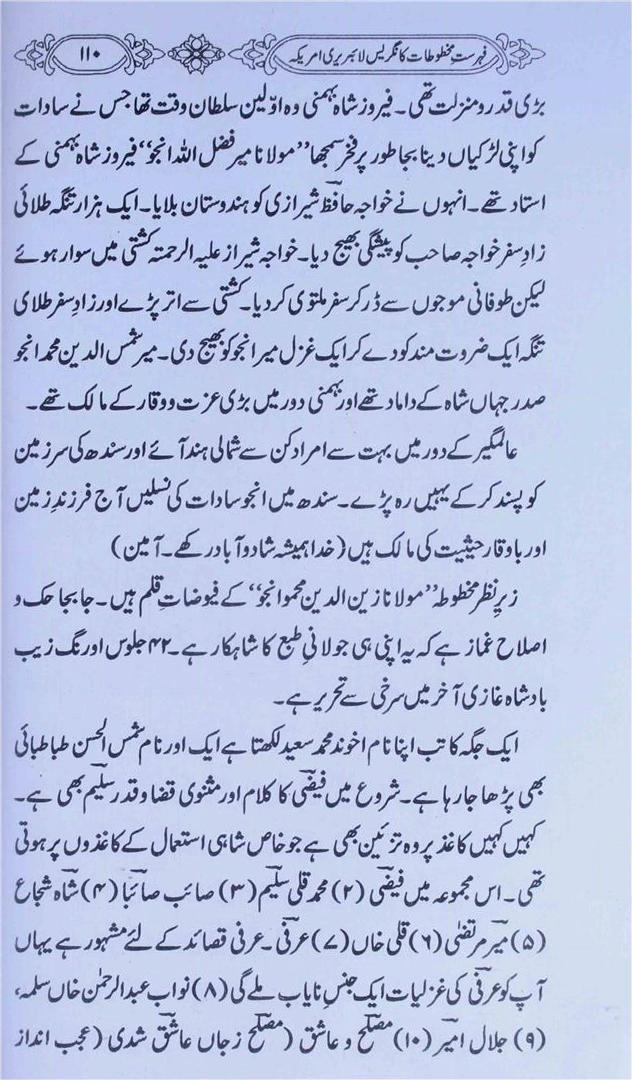 فہرستِ مخطوطات کانگریس لائبریری امریکہ
۱۱۰
بڑی قدر و منزلت تھی۔ فیروز شاہ بہمنی وہ اوّلین سلطان وقت تھا جس نے سادات
کو اپنی لڑکیاں دینا بجا طور پر فخر سمجھا ”مولانا میر فضل اللہ انجو“ فیروز شاہ بہمنی کے
استاد تھے۔ انہوں نے خواجہ حافظؔ شیرازی کو ہندوستان بلایا۔ ایک ہزار تنگہ طلائی
زادِ سفر خواجہ صاحب کو پیشگی بھیج دیا۔ خواجہ شیراز علیہ الرحمتہ کشتی میں سوار ہوئے
لیکن طوفانی موجوں سے ڈر کر سفر ملتوی کر دیا۔ کشتی سے اتر پڑے اور زادِ سفر طلای
تنگہ ایک ضروت مند کو دے کر ایک غزل میر انجو کو بھیج دی۔ میر شمس الدین محمد انجو
صدر جہاں شاہ کے داماد تھے اور بہمنی دور میں بڑی عزت و وقار کے مالک تھے۔
عالمگیر کے دور میں بہت سے امرا دکن سے شمالی ہند آئے اور سندھ کی سرزمین
کو پسند کر کے یہیں رہ پڑے۔ سندھ میں انجو سادات کی نسلیں آج فرزندِ زمین
اور باوقار حیثیت کی مالک ہیں (خدا ہمیشہ شاد و آباد رکھے۔ آمین)
زیرِ نظر مخطوطہ ”مولانا زین الدین محمو انجو“ کے فیوضاتِ قلم ہیں۔ جا بجا حک و
اصلاح غماز ہے کہ یہ اپنی ہی جولانیِ طبع کا شاہکار ہے۔ ۴۲ جلوس اورنگ زیب
بادشاہ غازی آخر میں سرخی سے تحریر ہے۔
ایک جگہ کاتب اپنا نام اخوند محمد سعید لکھتا ہے ایک اور نام شمس الحسن طباطبائی
بھی پڑھا جا رہا ہے۔ شروع میں فیضیؔ کا کلام اور مثنوی قضا و قدر سلیمؔ بھی ہے۔
کہیں کہیں کاغذ پر وہ تزئین بھی ہے جو خاص شاہی استعمال کے کاغذوں پر ہوتی
تھی۔ اس مجموعہ میں فیضیؔ (۲) محمد قلی سلیمؔ (۳) صائب صائباؔ (۴) شاہ شجاع
(۵) میر مرتضیٰ (۶) قلی خاں (۷) عرفیؔ۔ عرفی قصائد کے لئے مشہور ہے یہاں
آپ کو عرفیؔ کی غزلیات ایک جنسِ نایاب ملے گی (۸) نواب عبدالرحمٰن خاں سلمہ،
(۹) جلال امیرؔ (۱۰) مصلحؔ و عاشق (مصلحؔ زجاں عاشقؔ شدی (عجب انداز